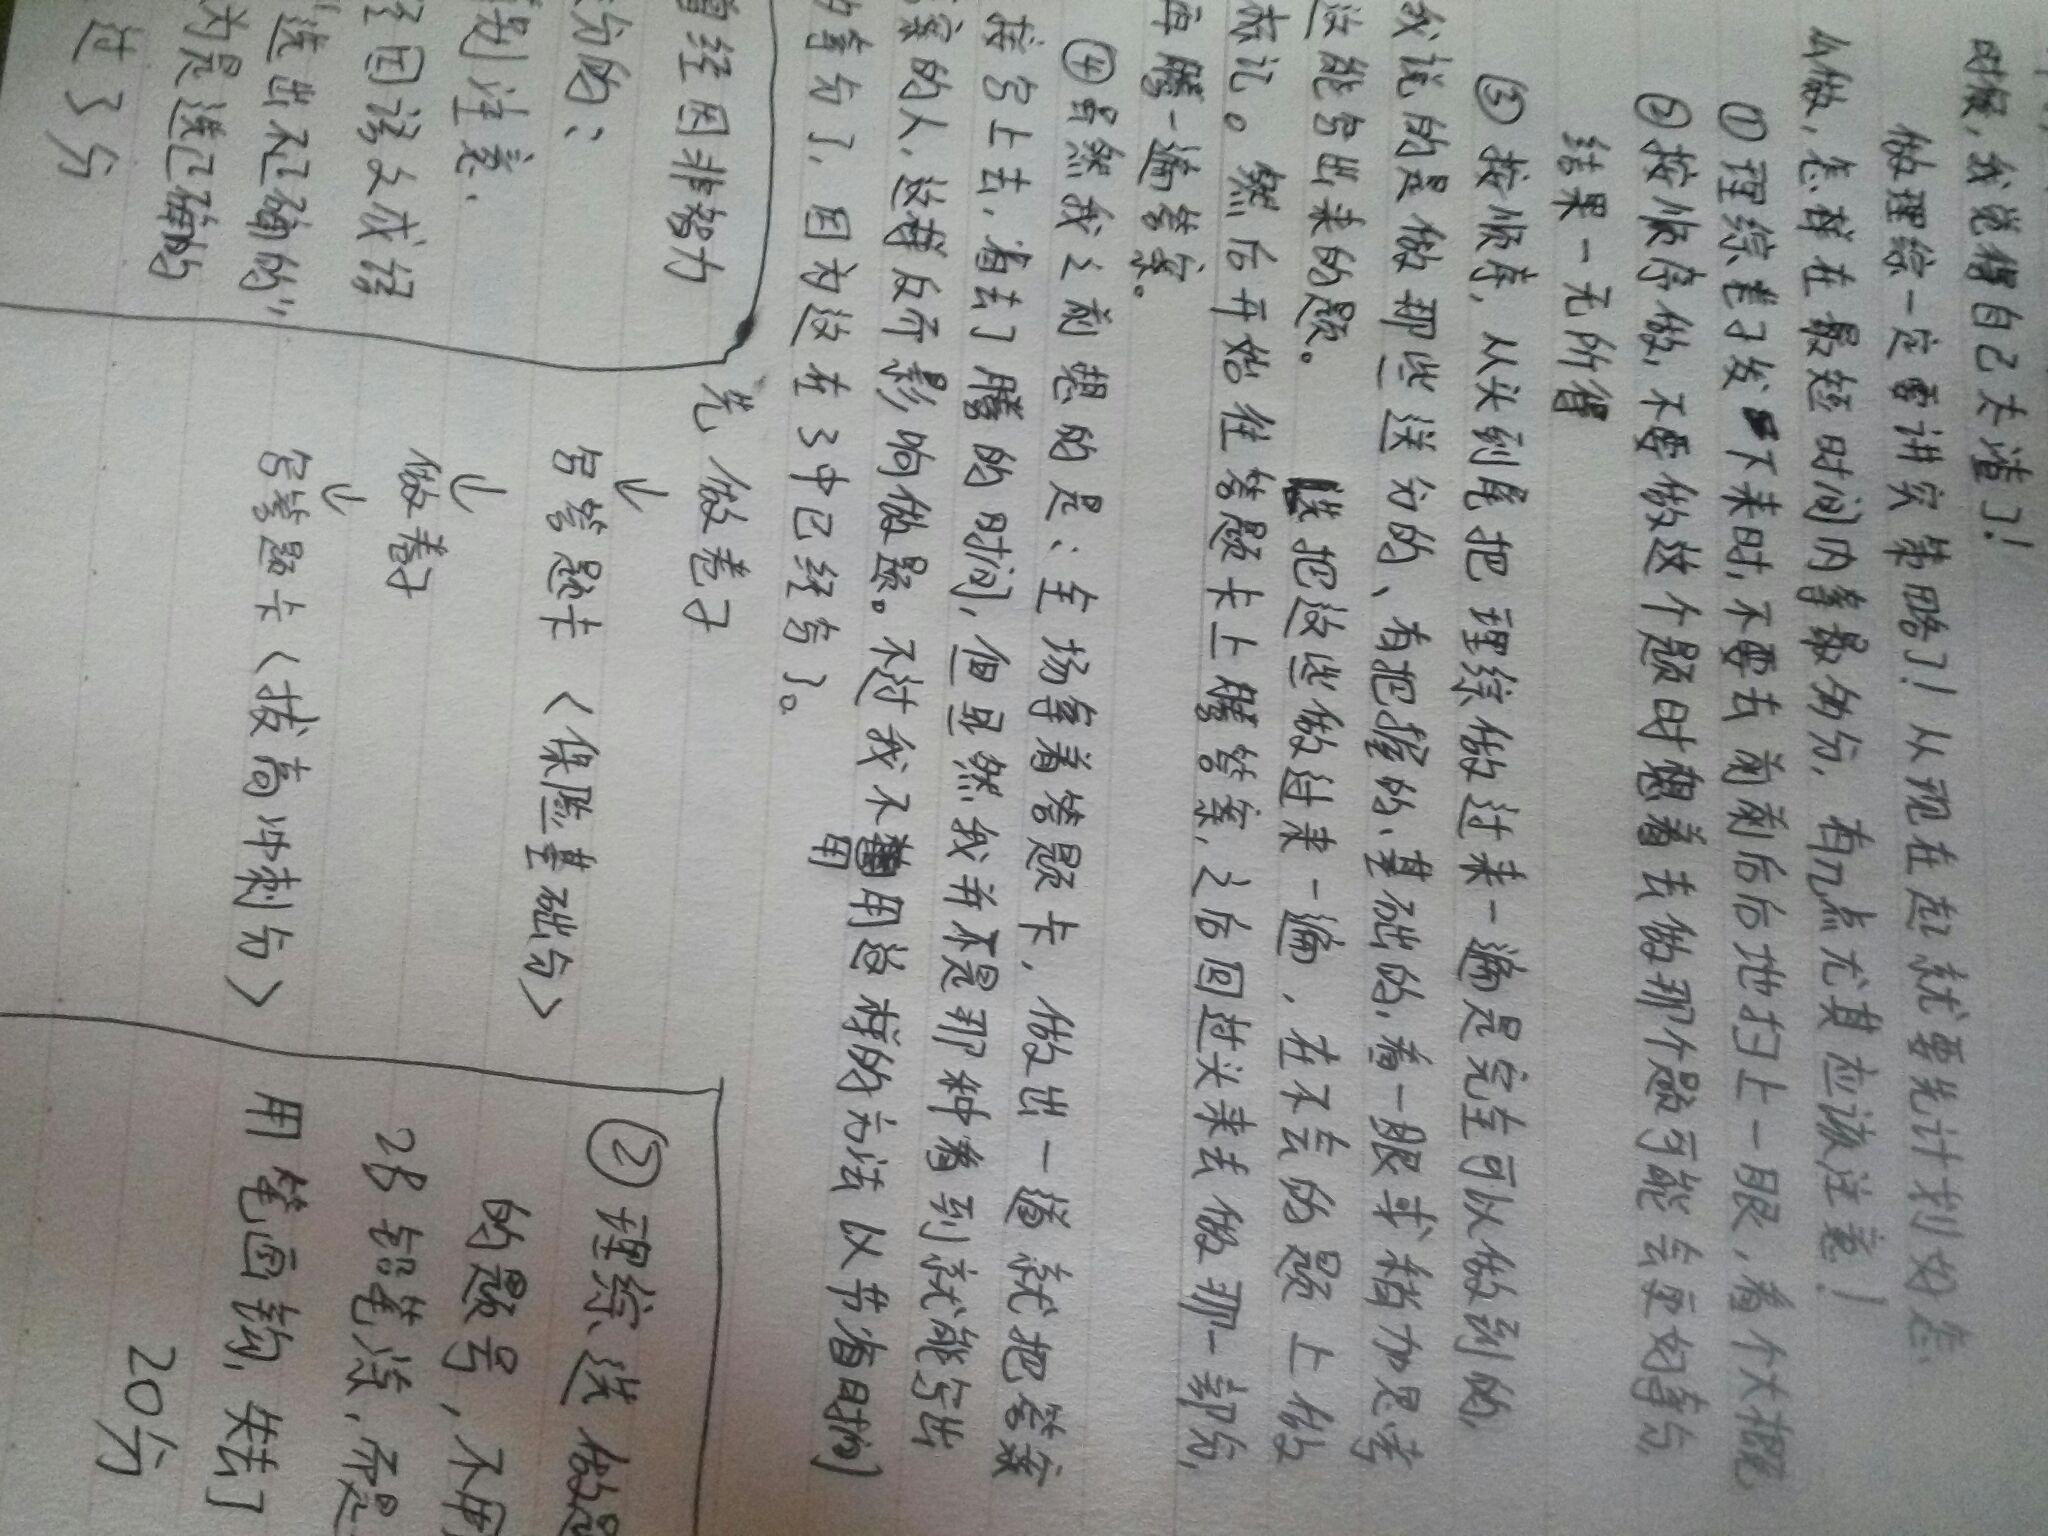 时候，我觉得自己太渣了！
做理综一定要讲究策略了！从现在起就要先计划好怎
么做，怎样在最短时间内拿最多的分，有几点尤其应该注意！
①理综卷子发下来时，不要去前前后后地扫上一眼，看个大概
②按顺序做，不要做这个题时想着去做那个题可能会更好拿分，
结果一无所得
③按顺序，从头到尾把理综做过来一遍是完全可以做到的，
我说的是做那些送分的、有把握的、基础的，看一眼或稍加思考
就能写出来的题。 把这些做过来一遍，在不会的题上做
标记。然后开始往答题卡上腾答案，之后回过头来去做那一部分，
再腾一遍答案。
④虽然我之前想的是：全场拿着答题卡，做出一道就把答案
写上去，省去了腾的时间，但显然我并不是那种看到就能写出
答案的人，这样反而影响做题。不过我不用这样的方法以节省时间
用
拿分了，因为这在3中已经写了。
曾经因非智力
分的：
特别注意.
因误文成语
"选出不正确的"
为是选正确的
过3分
先做卷子
↓
写答题卡〈保险基础分〉
↓
做卷子
↓
写答题卡〈拔高冲刺分〉
②理综、选做题
的题号，不用
2B铅笔涂，而是
用笔画钩，失去了
20分